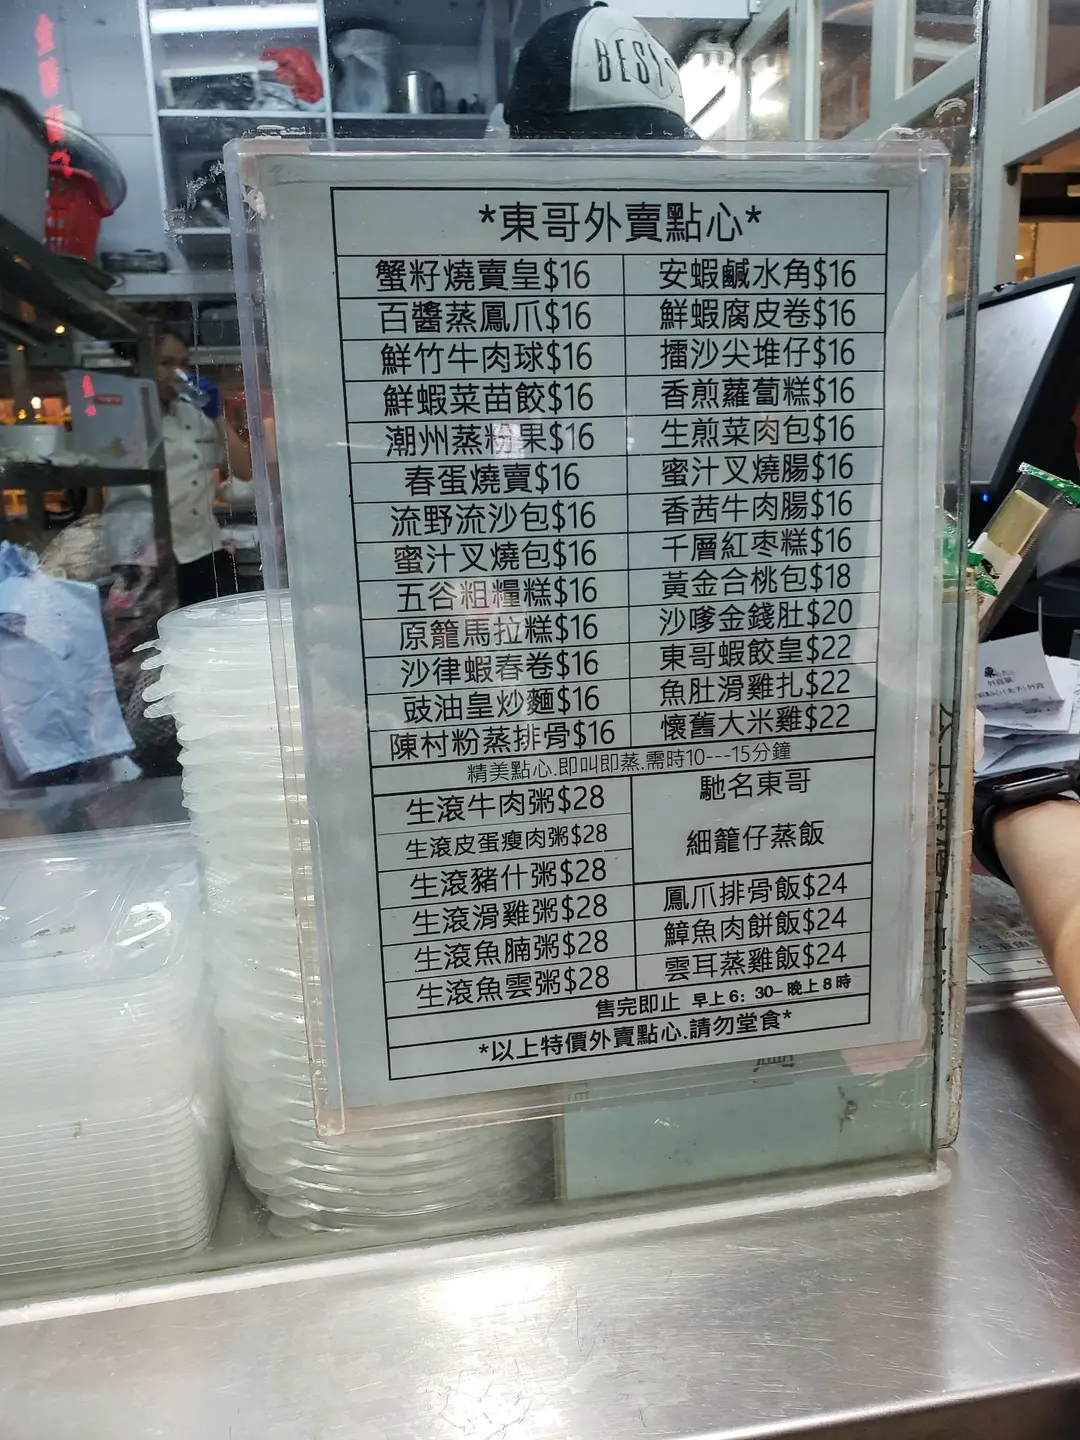 BEST
*東哥外賣點心*
蟹籽燒賣皇$16 安蝦鹹水角$16
百醬蒸鳳爪$16 鮮蝦腐皮卷$16
鮮竹牛肉球$16 擂沙尖堆仔$16
鮮蝦菜苗餃$16 香煎蘿蔔糕$16
潮州蒸粉果$16 生煎菜肉包$16
春蛋燒賣$16 蜜汁叉燒腸$16
流野流沙包$16 香茜牛肉腸$16
蜜汁叉燒包$16 千層紅枣糕$16
五谷粗糧糕$16 黃金合桃包$18
原籠馬拉糕$16 沙嗲金錢肚$20
沙律蝦春卷$16 東哥蝦餃皇$22
豉油皇炒麵$16 魚肚滑雞扎$22
陳村粉蒸排骨$16 懷舊大米雞$22
精美點心.即叫即蒸.需時10---15分鐘
生滾牛肉粥$28
生滾皮蛋瘦肉粥$28
生滾豬什粥$28
生滾滑雞粥$28
生滾魚腩粥$28
生滾魚雲粥$28
馳名東哥
細籠仔蒸飯
鳳爪排骨飯$24
鱆魚肉餅飯$24
雲耳蒸雞飯$24
售完即止 早上6：30-晚上8時
*以上特價外賣點心.請勿堂食*